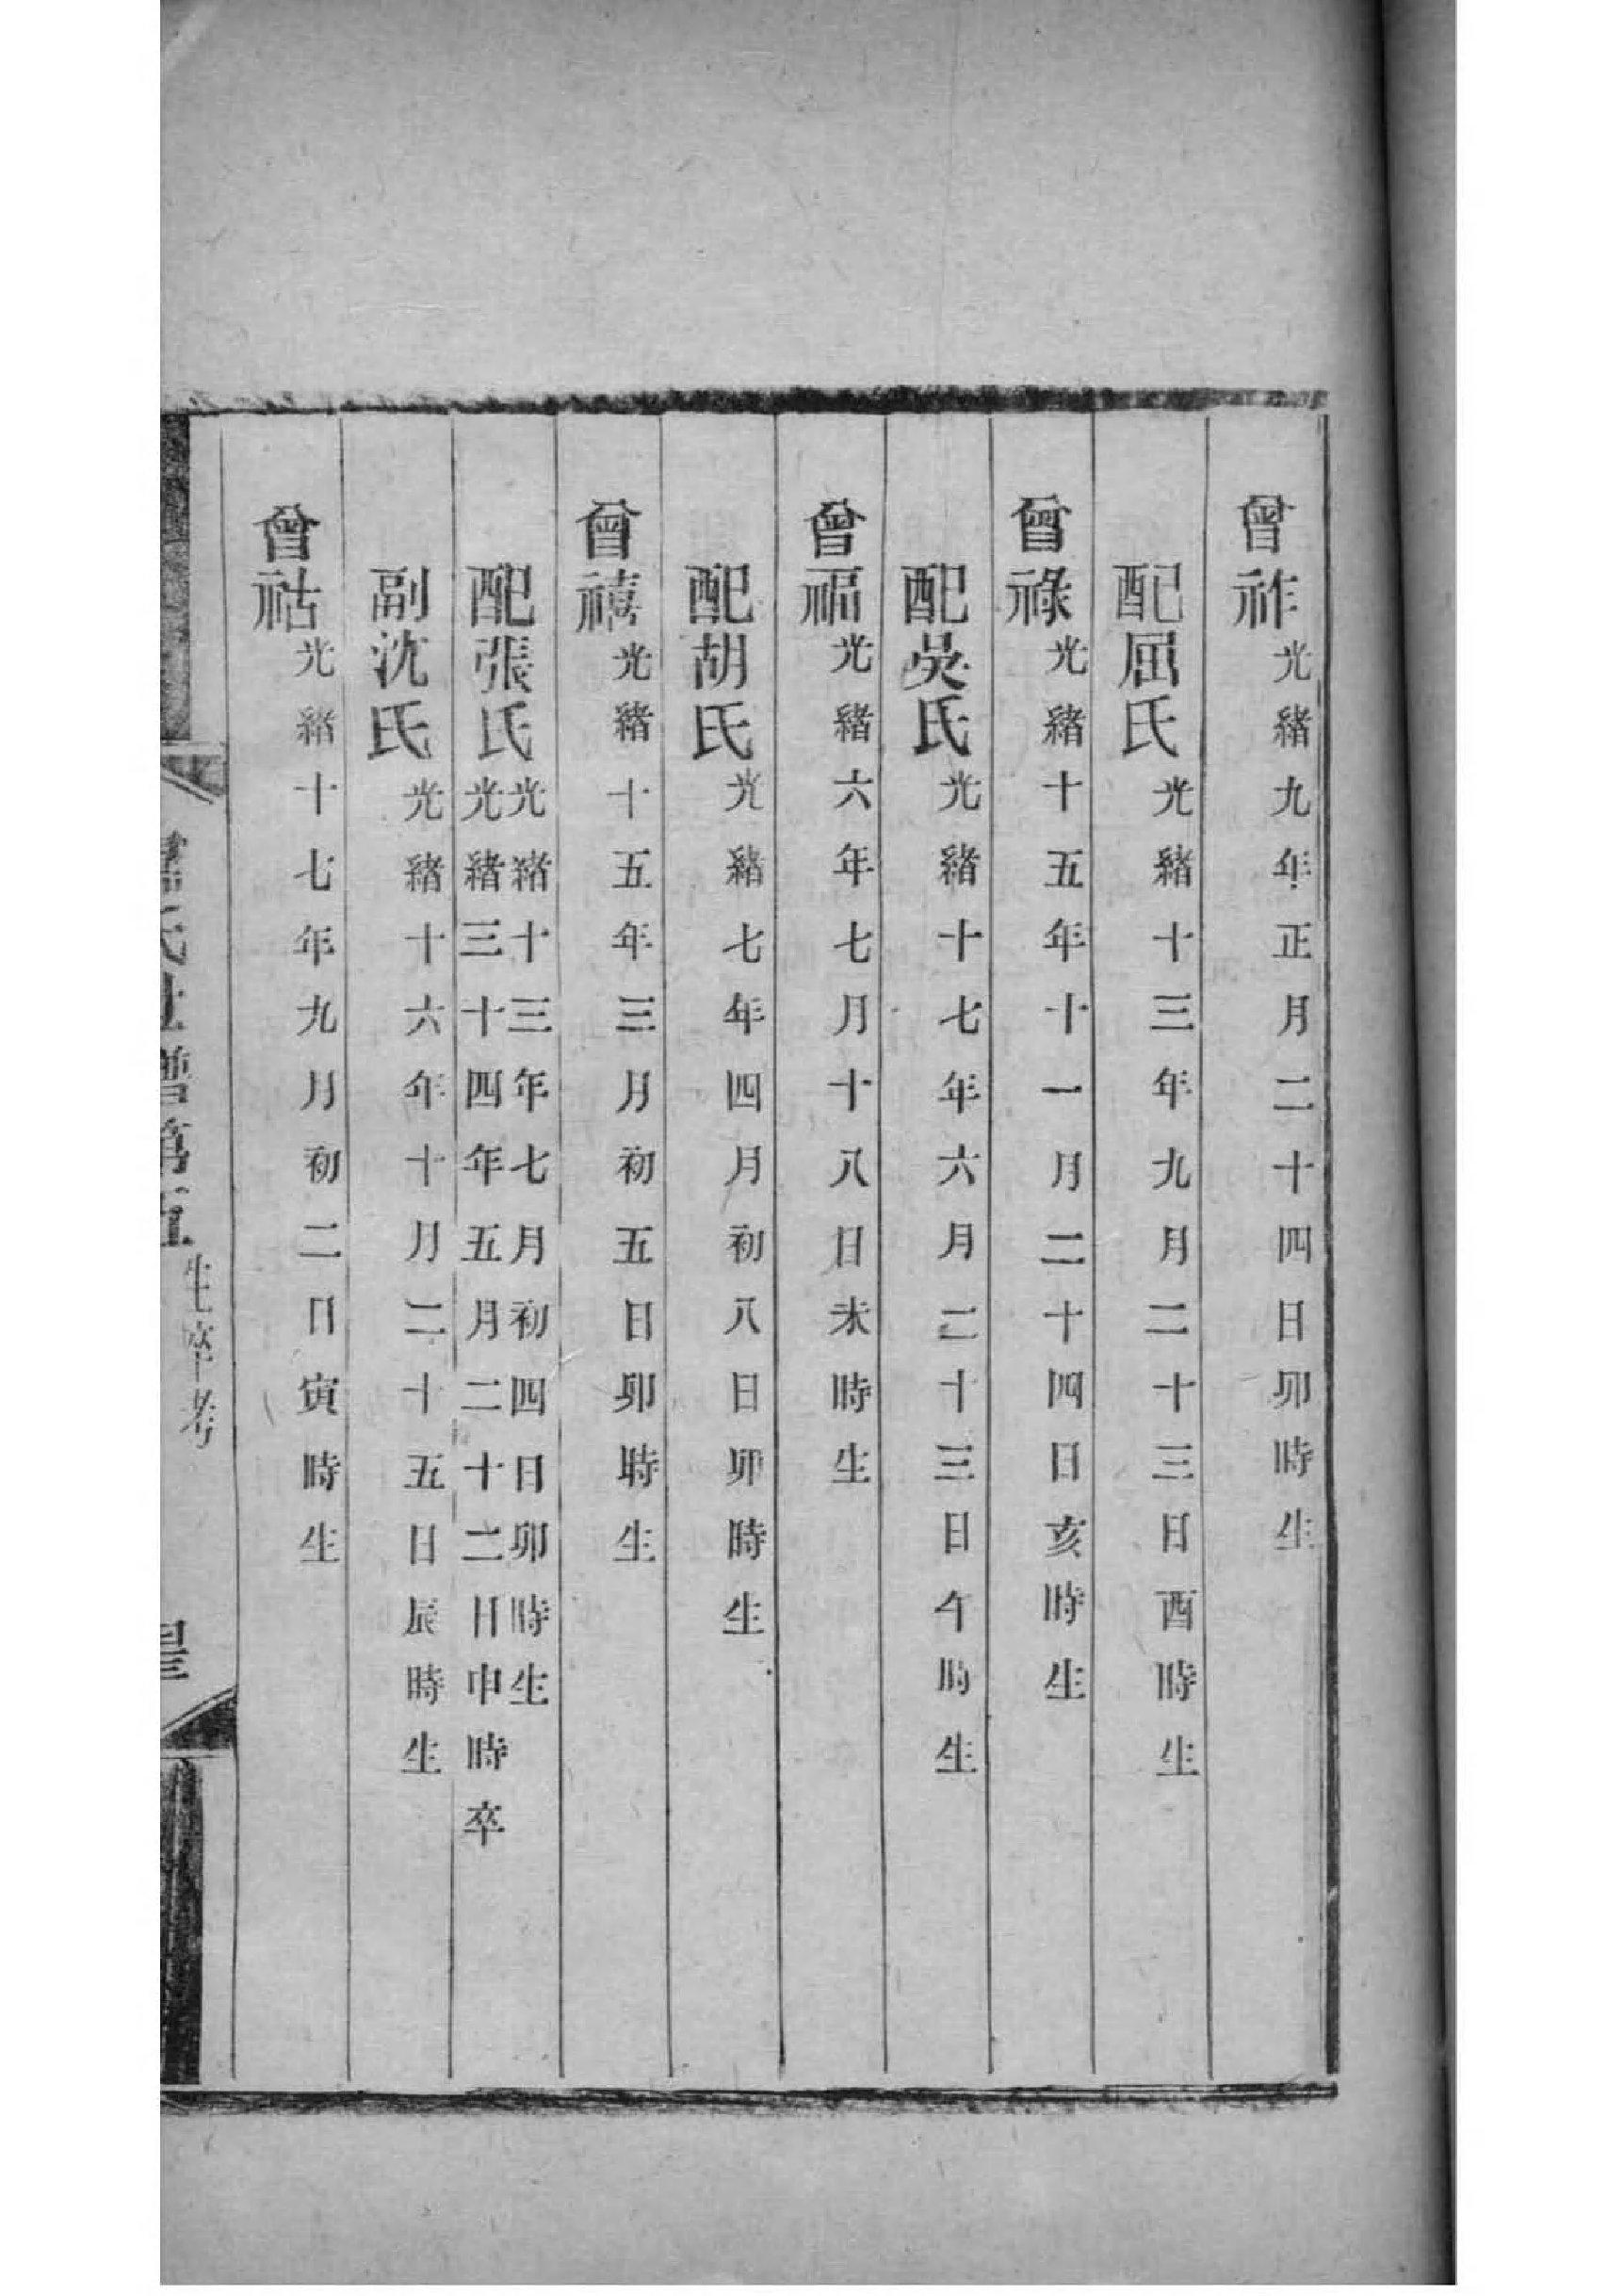 曾祚光緒九年正月二十四日卯時生
配屈氏光緒十三年九月二十三日酉時生
曾祿光緒十五年十一月二十四日亥時生
配吳氏光緒十七年六月二十三日午時生
曾福光緒六年七月十八日未時生
配胡氏光緒七年四月初八日卯時生
曾禧光緒十五年三月初五日卯時生
配張氏光緒十三年七月初四日卯時生
光緒三十四年五月二十二日申時卒
副沈氏光緒十六年十月二十五日辰時生
曾祜光緒十七年九月初二日寅時生
氏世譜第五生卒考